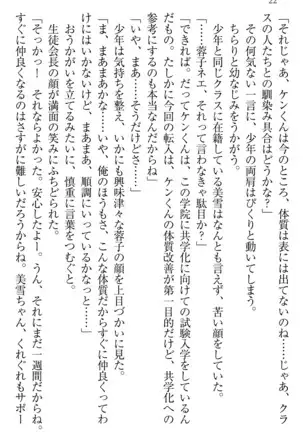 22
「それじゃあ、ケンくんは今のところ、体質は表には出てないのね……じゃあ、クラ
スの人たちとの馴染み具合はどうかな？」
その何気ない一言に、少年の両肩はびくりと動いてしまう。
ちらりと幼なじみをうかがう。
少年と同じクラスに在籍している美雪はなんとも言えず、苦い顔をしていた。
「……蓉子ネエ、それって言わなきゃ駄目か？」
「できれば。だってケンくんは、この学院に共学化に向けての試験入学をしているん
だもの。たしかに今回の転入は、ケンくんの体質改善が第一目的だけど、共学化への
参考にするのも本当なんだからね」
「いや、まあ……そうだけどさ……」
少年は気持ちを整え、いかにも興味津々な蓉子の顔を上目づかいに見た。
「ま、まあまあかな……いや、俺のほうもさ、こんな体質だからすぐに仲良くってわ
けにはいかないけど、まあまあ、順調にいっているかなっと……」
おうかがいを立てるみたいに、慎重に言葉をつむぐと。
生徒会長の顔が満面の笑みにふちどられた。
「そっかー！　それならよかった。安心したよー。うん、それにまだ一週間だからね。
すぐに仲良くなるのはさすがに難しいだろうからね。美雪ちゃん、くれぐれもサポー